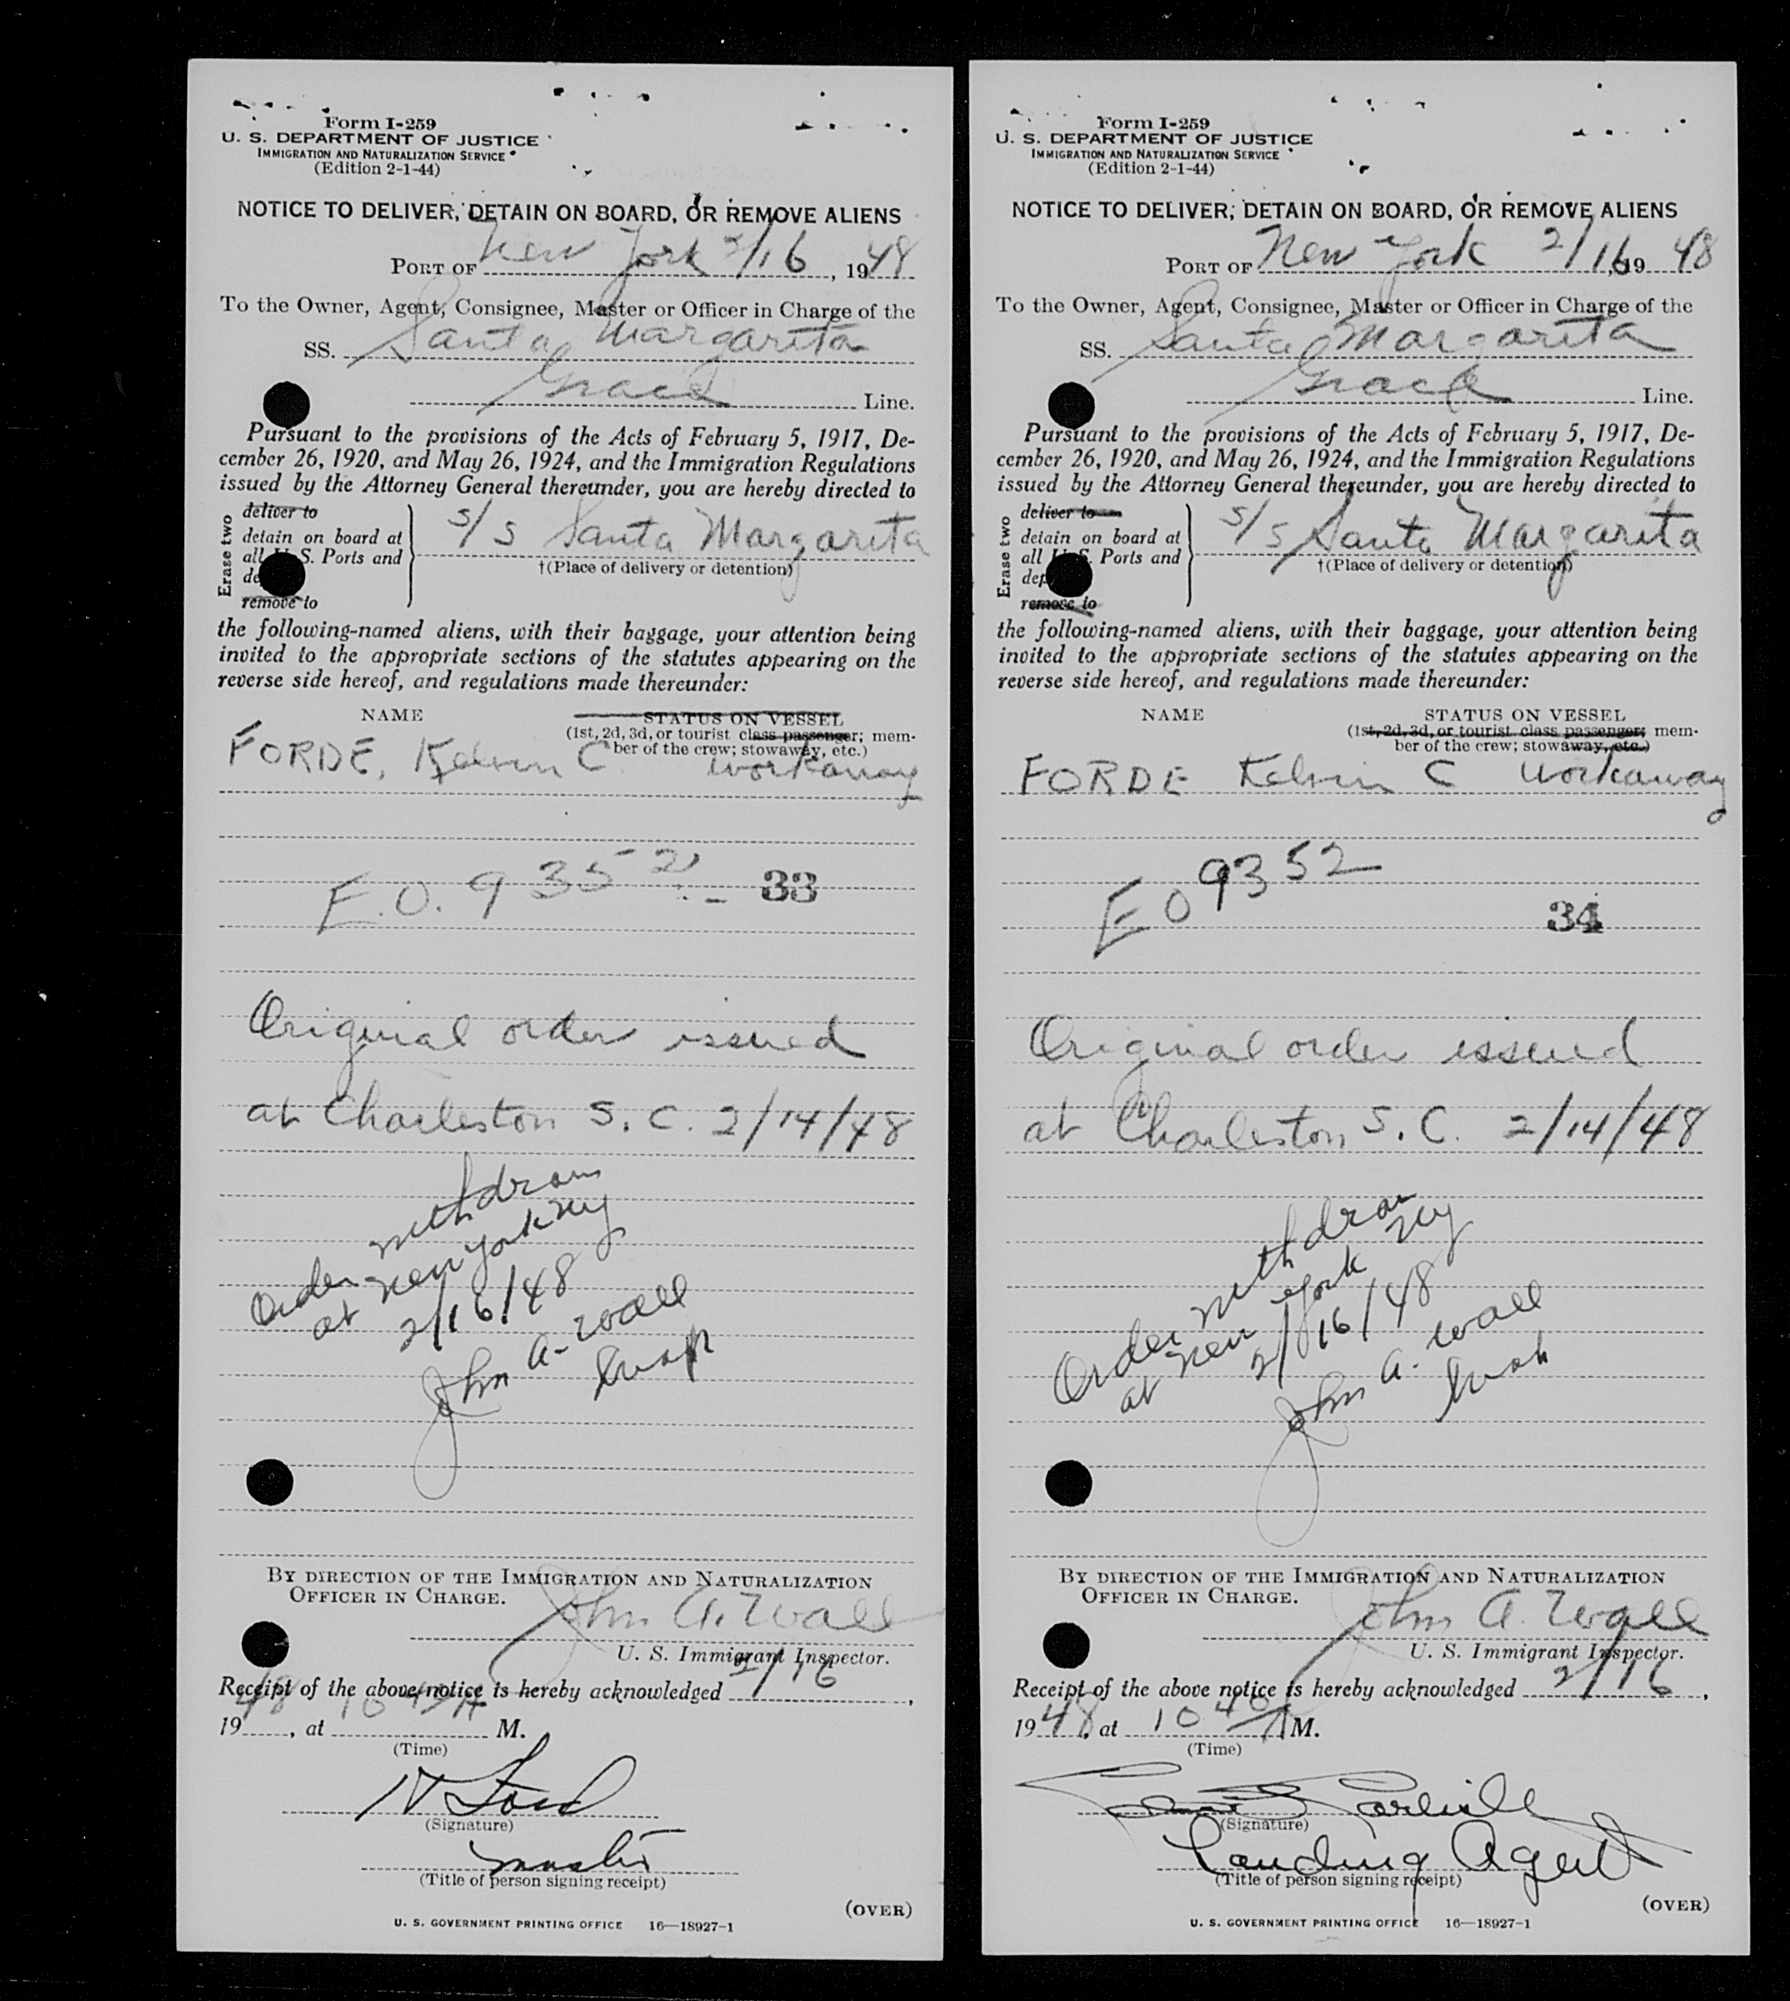 Form I-259
U. S. DEPARTMENT OF JUSTICE
IMMIGRATION AND NATURALIZATION SERVICE
(Edition 2-1-44)
NOTICE TO DELIVER, DETAIN ON BOARD, OR REMOVE ALIENS
PORT OF New York 2/16, 1948
To the Owner, Agent, Consignee, Master or Officer in Charge of the
SS. Santa Margarita
Grace Line.
Pursuant to the provisions of the Acts of February 5, 1917, De-
cember 26, 1920, and May 26, 1924, and the Immigration Regulations
issued by the Attorney General thereunder, you are hereby directed to
Erase two
deliver to
detain on board at
all U. S. Ports and
remove to
S/S Santa Margarita
†(Place of delivery or detention)
the following-named aliens, with their baggage, your attention being
invited to the appropriate sections of the statutes appearing on the
reverse side hereof, and regulations made thereunder:
NAME STATUS ON VESSEL
(1st, 2d, 3d, or tourist class passenger; mem-
ber of the crew; stowaway, etc.)
FORDE, Kelvin C workaway
E.O. 9352 33
Original order issued
at Charleston S. C. 2/14/48
Order withdrawn
at New York NY
2/16/48
John A. Wall
Insp
BY DIRECTION OF THE IMMIGRATION AND NATURALIZATION
OFFICER IN CHARGE.
John A. Wall
U. S. Immigrant Inspector.
Receipt of the above notice is hereby acknowledged 2/16,
1948, at M.
(Time)
Ford
(Signature)
Master
(Title of person signing receipt)
(OVER)
U. S. GOVERNMENT PRINTING OFFICE 16—18927-1
Form I-259
U. S. DEPARTMENT OF JUSTICE
IMMIGRATION AND NATURALIZATION SERVICE
(Edition 2-1-44)
NOTICE TO DELIVER, DETAIN ON BOARD, OR REMOVE ALIENS
PORT OF New York 2/16, 1948
To the Owner, Agent, Consignee, Master or Officer in Charge of the
SS. Santa Margarita
Grace Line.
Pursuant to the provisions of the Acts of February 5, 1917, De-
cember 26, 1920, and May 26, 1924, and the Immigration Regulations
issued by the Attorney General thereunder, you are hereby directed to
Erase two
deliver to
detain on board at
all U. S. Ports and
remove to
S/S Santa Margarita
†(Place of delivery or detention)
the following-named aliens, with their baggage, your attention being
invited to the appropriate sections of the statutes appearing on the
reverse side hereof, and regulations made thereunder:
NAME STATUS ON VESSEL
(1st, 2d, 3d, or tourist class passenger; mem-
ber of the crew; stowaway, etc.)
FORDE Kelvin C workaway
EO 9352
34
Original order issued
at Charleston S. C. 2/14/48
Order withdrawn
at New York NY
2/16/48
John A. Wall
Insp
BY DIRECTION OF THE IMMIGRATION AND NATURALIZATION
OFFICER IN CHARGE.
John A. Wall
U. S. Immigrant Inspector.
Receipt of the above notice is hereby acknowledged 2/16,
1948, at 10 40 A M.
(Time)
(Signature)
Landing Agent
(Title of person signing receipt)
(OVER)
U. S. GOVERNMENT PRINTING OFFICE 16—18927-1